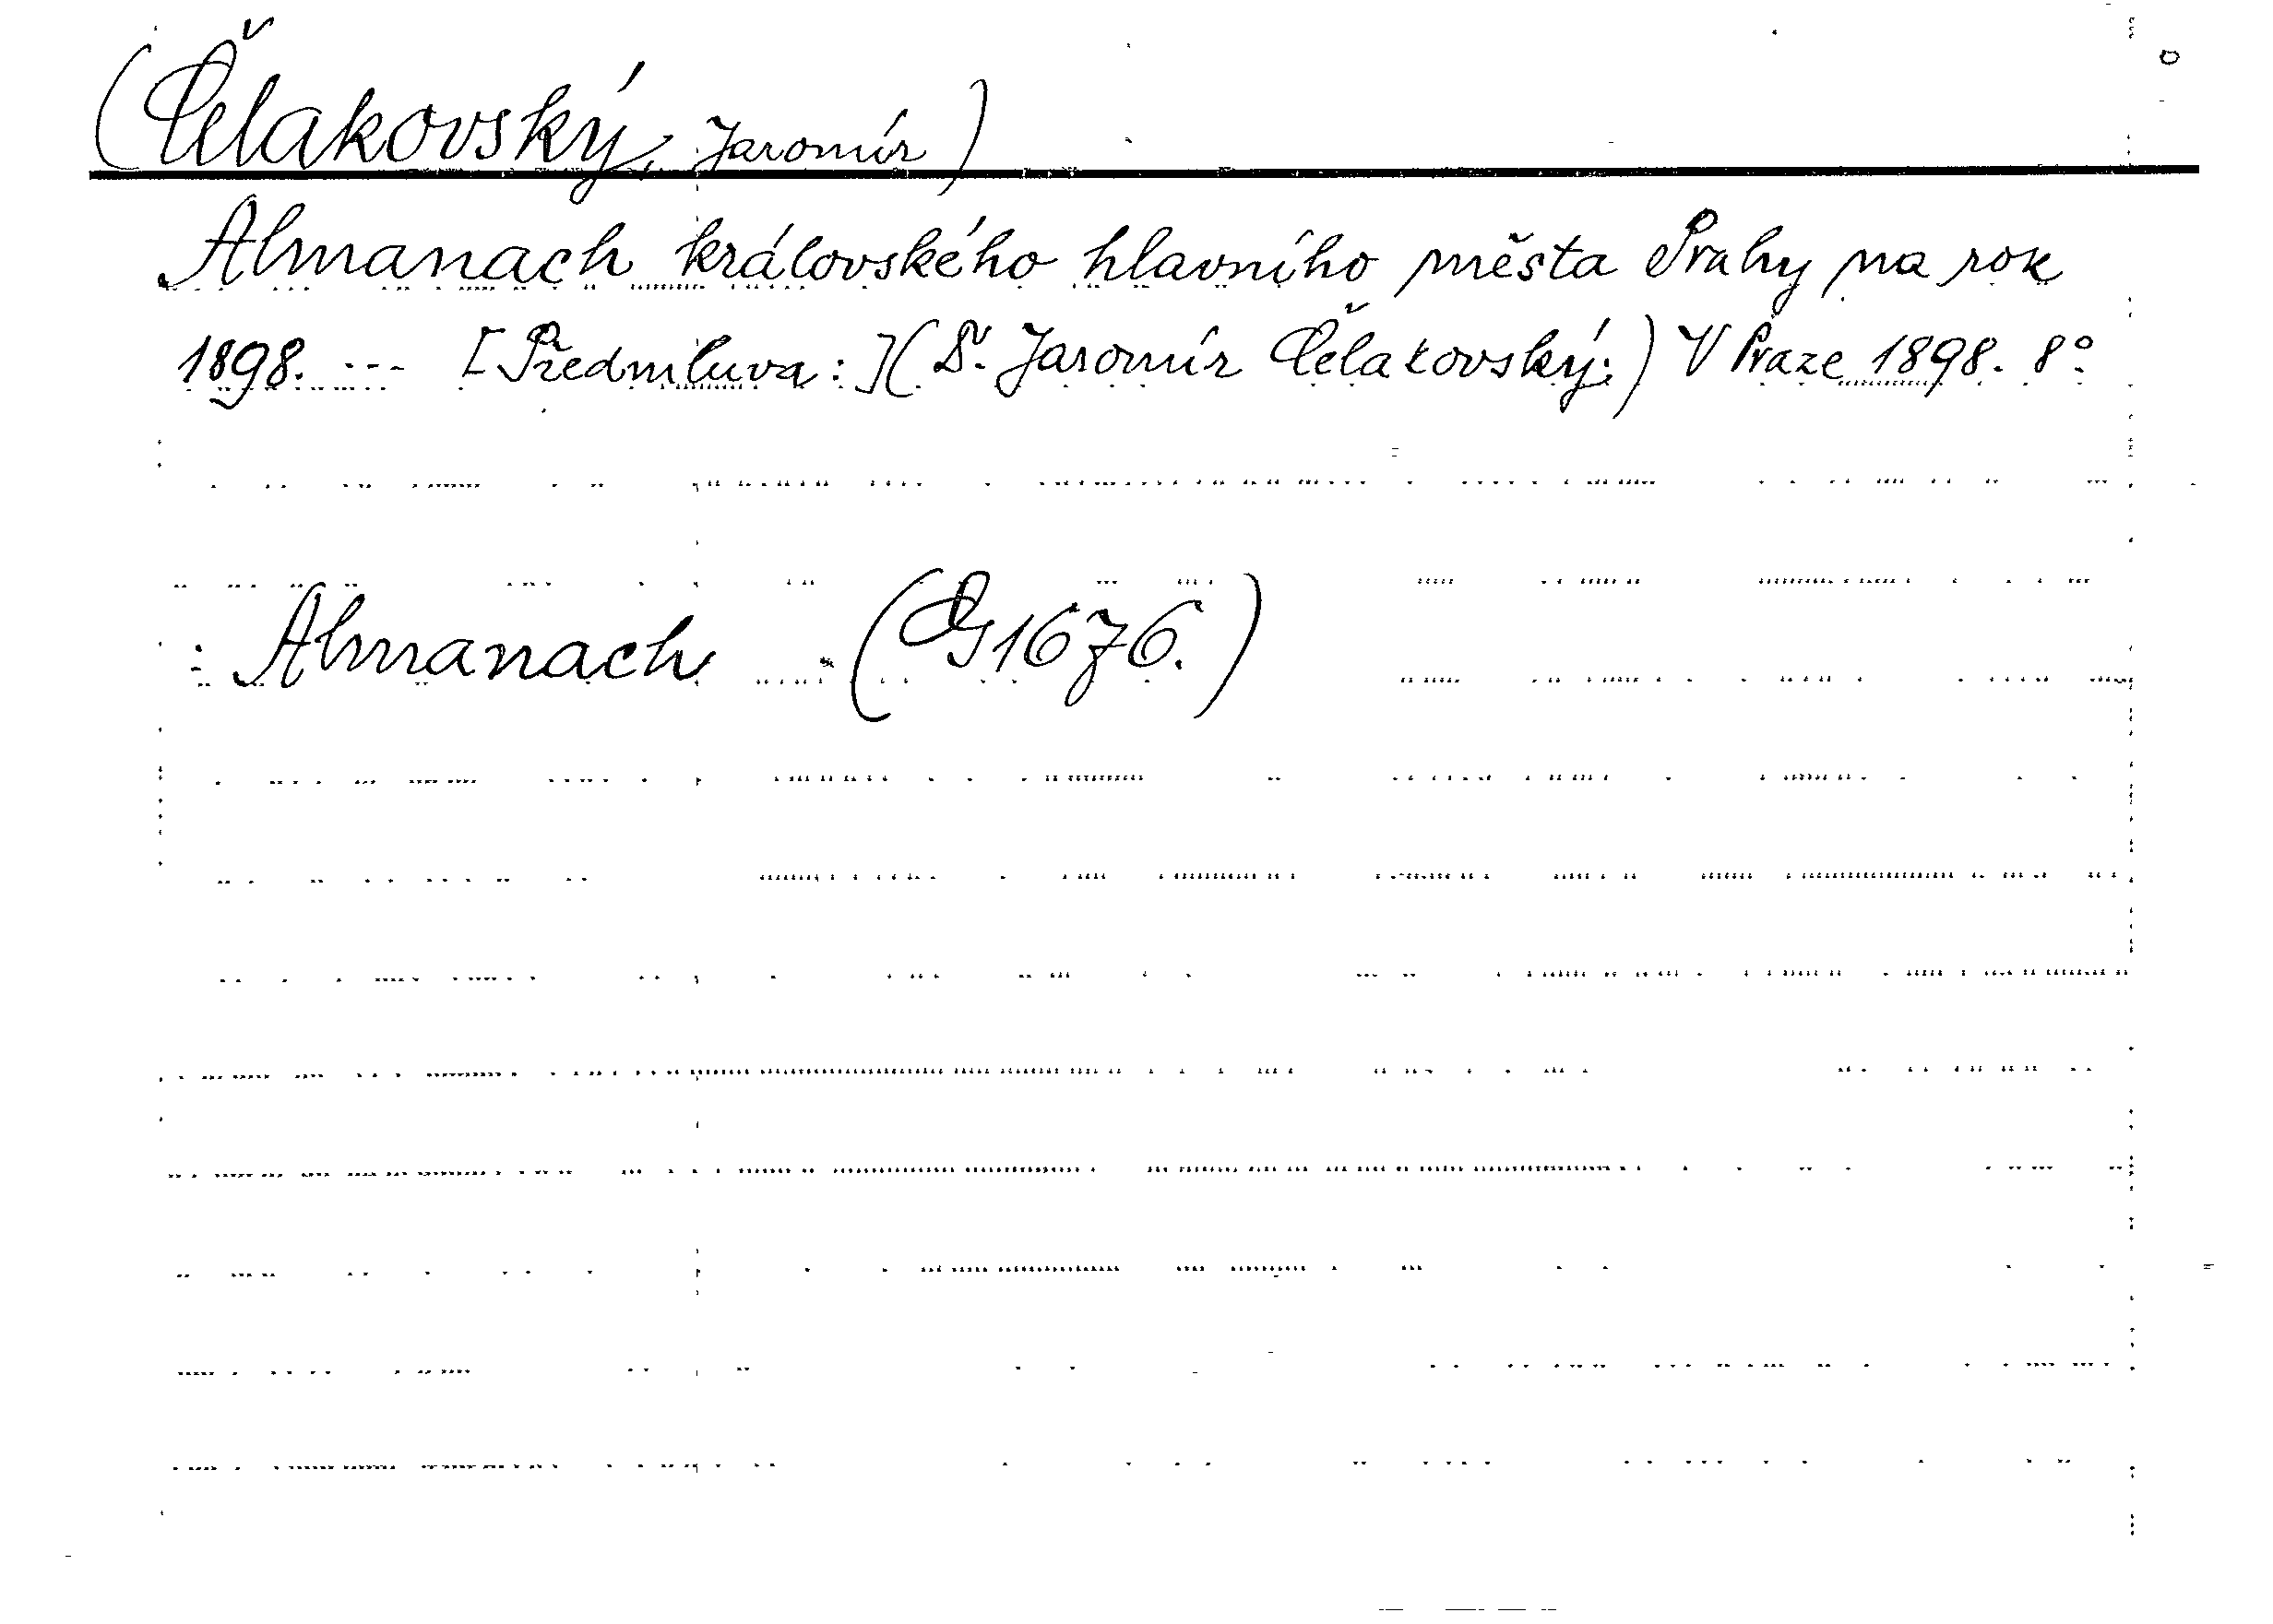 (Čelakovský, Jaromír)
Almanach královského hlavního města Prahy na rok
1898. --- [Předmluva:](Dr. Jaromír Čelakovský.) V Praze 1898. 8°.
: Almanach (G 1676.)